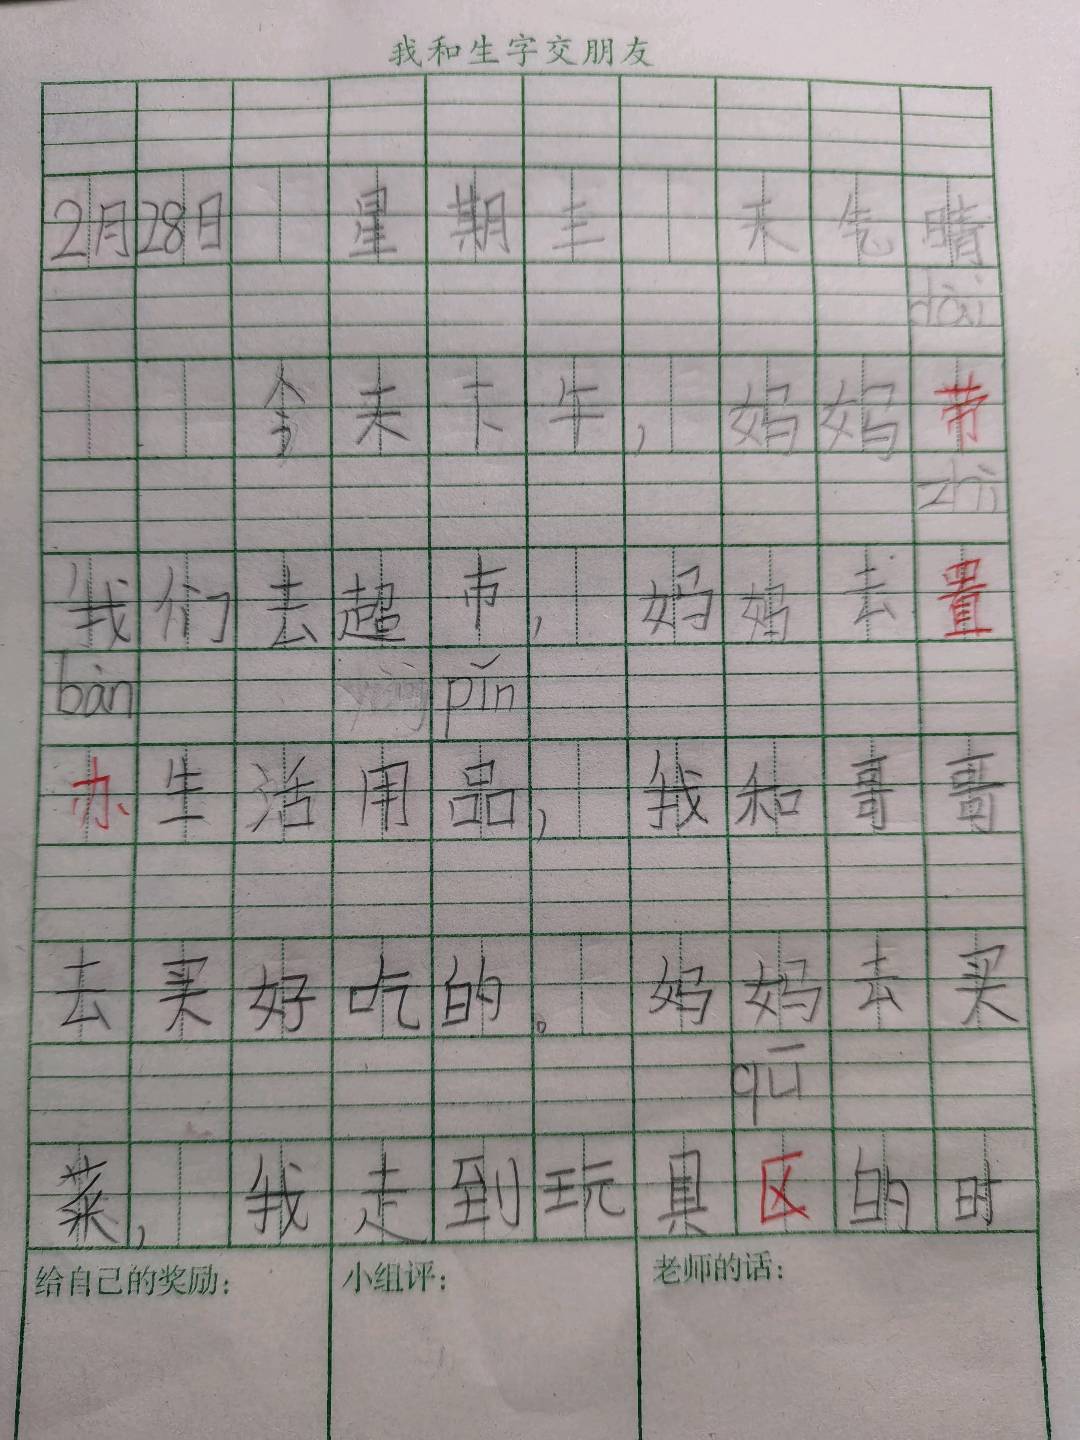 我和生字交朋友
2月28日 星期三 天气晴
dài
今天下午, 妈妈带
zhì
我们去超市, 妈妈去置
bàn pǐn
办生活用品, 我和哥哥
去买好吃的。 妈妈去买
qū
菜, 我走到玩具区的时
给自己的奖励: 小组评: 老师的话: